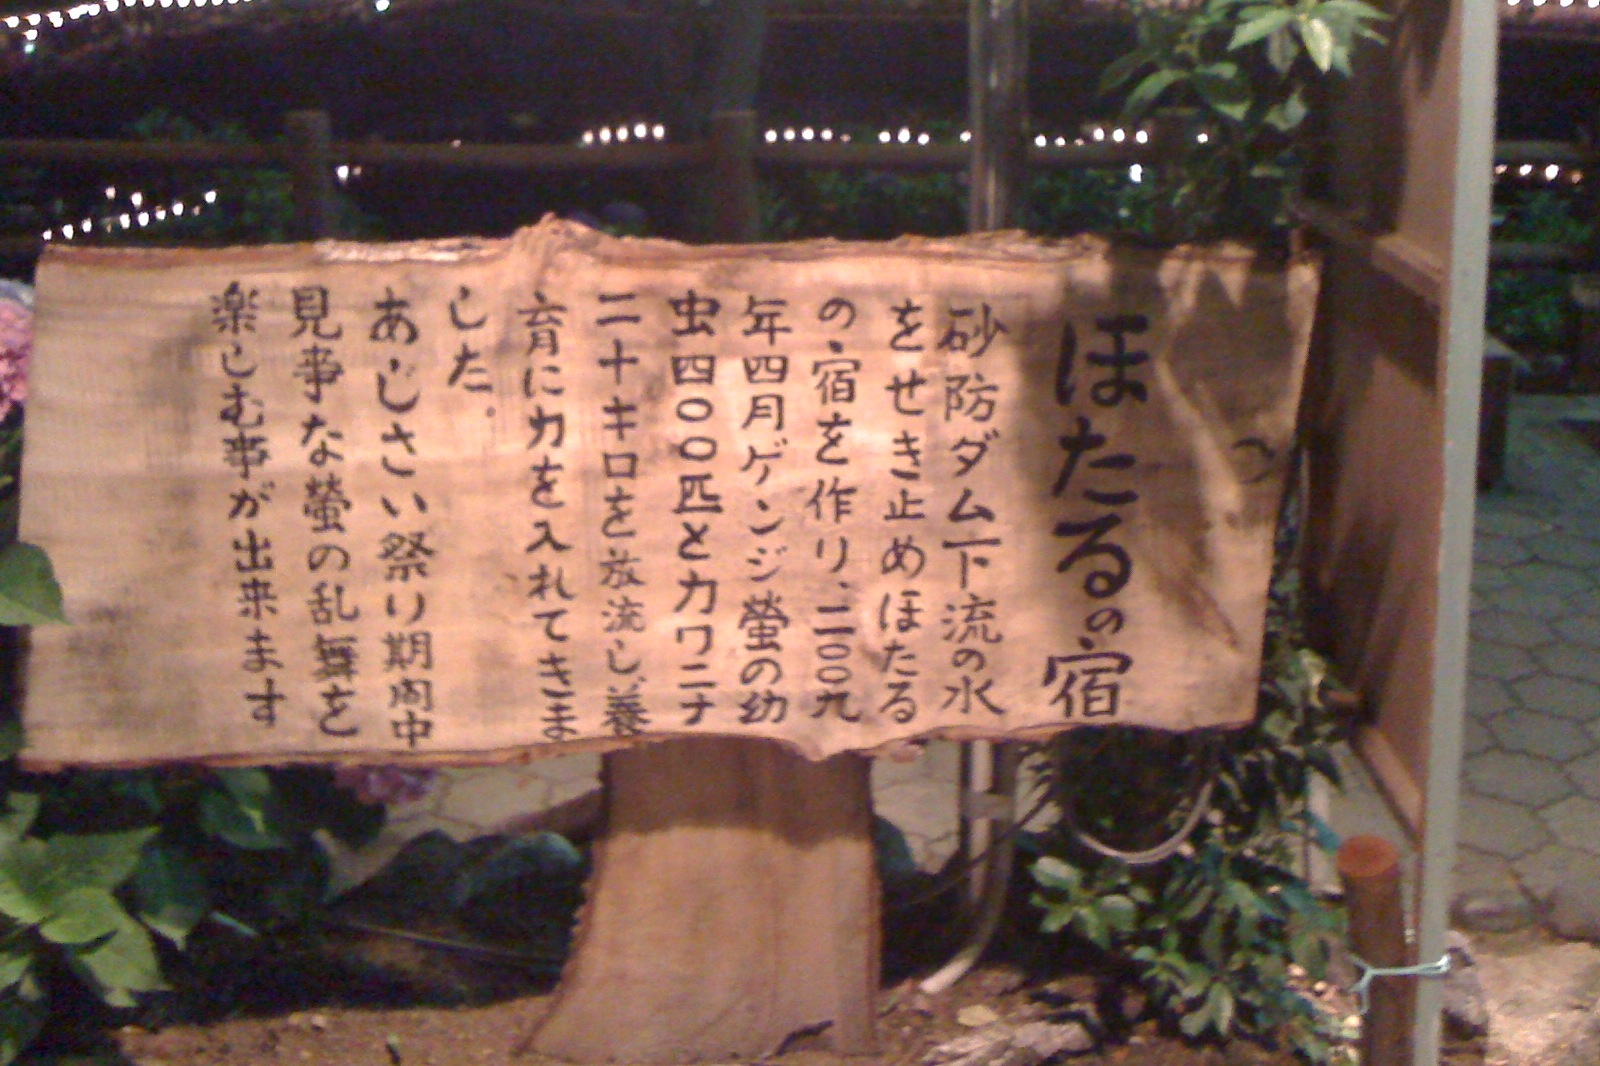 ほたるの宿
砂防ダム下流の水
をせき止めほたる
の宿を作り、二〇〇九
年四月ゲンジ螢の幼
虫四〇〇匹とカワニナ
二十キロを放流し、養
育に力を入れてきま
した。
あじさい祭り期間中
見事な螢の乱舞を
楽しむ事が出来ます